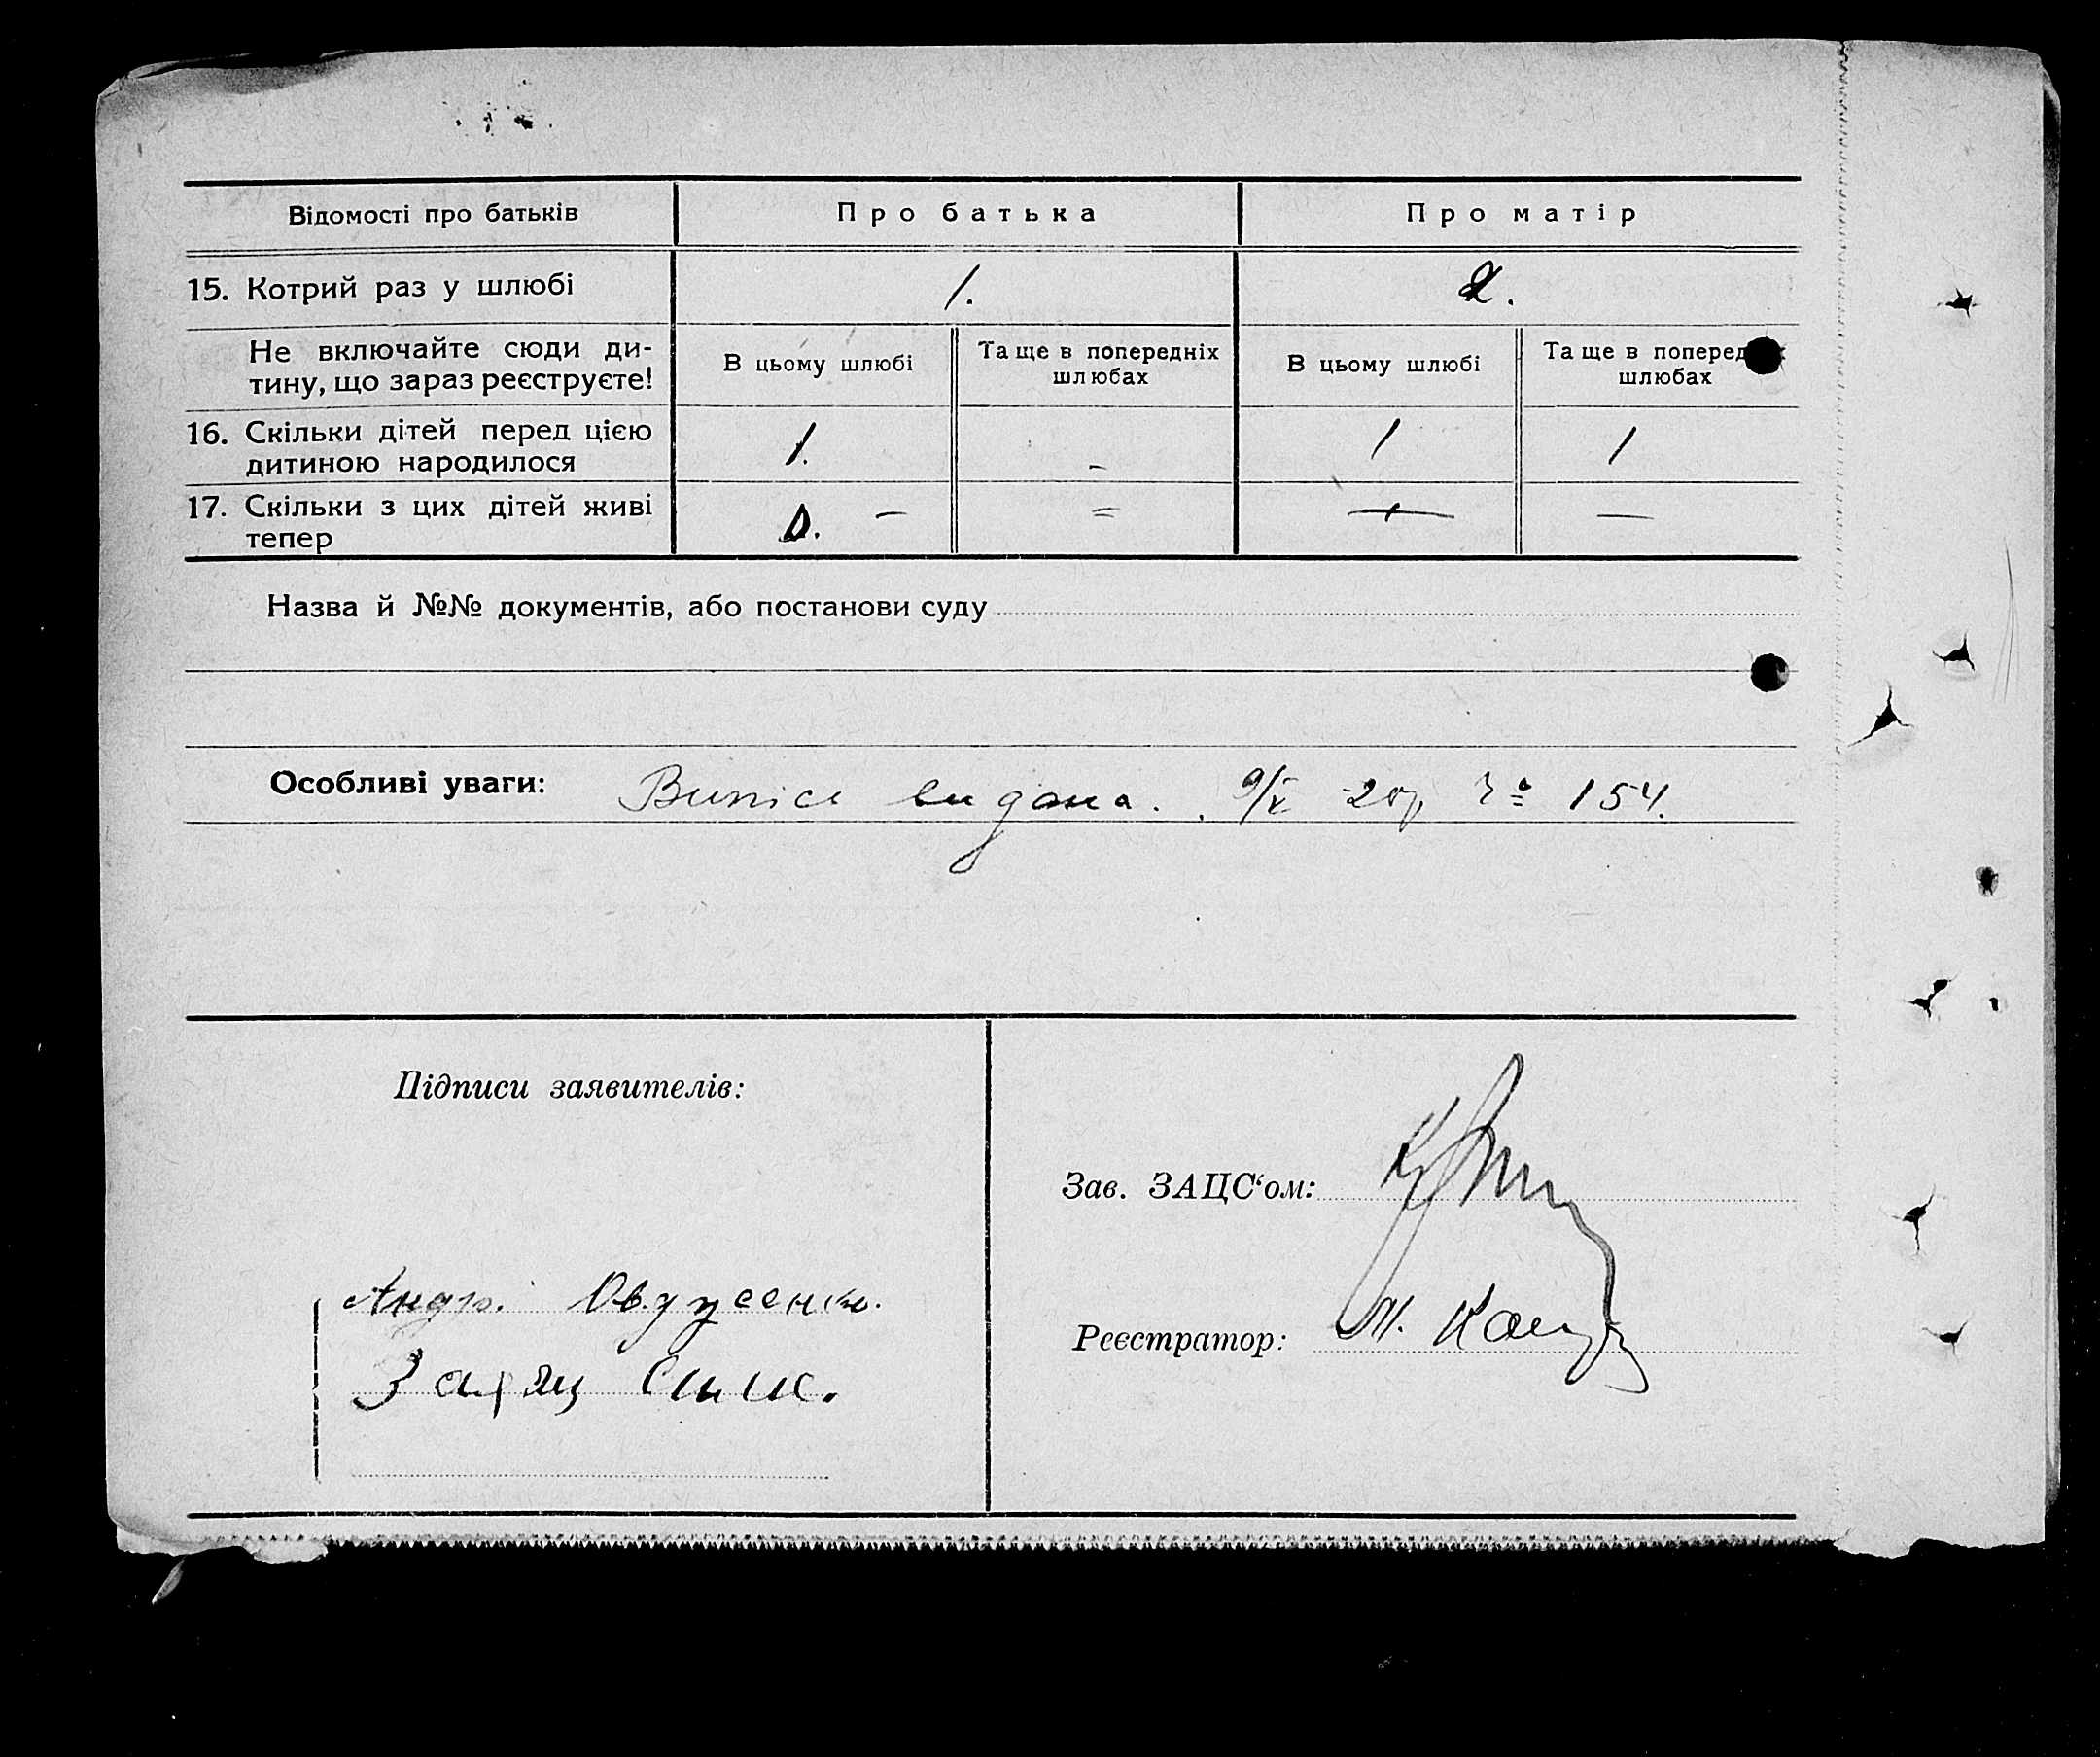 Відомості про батьків Про батька Про матір
15. Котрий раз у шлюбі 1. 2.
Не включайте сюди ди-
тину, що зараз реєструєте!
В цьому шлюбі
Та ще в попередніх
шлюбах
В цьому шлюбі
Та ще в поперед
шлюбах
16. Скільки дітей перед цією
дитиною народилося
1. - 1 1
17. Скільки з цих дітей живі
тепер
- = —
Назва й №№ документів, або постанови суду
Особливі уваги: Випись видана. 9/X № 154.
Підписи заявителів:
Зав. ЗАЦС‘ом:
Реєстратор:
Заяц